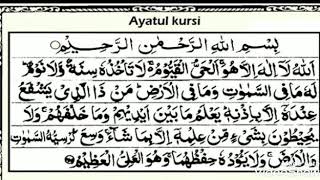 Ayatul kursi
بِسْمِ اللهِ الرَّحْمٰنِ الرَّحِيْمِ
اَللهُ لَاۤ اِلٰهَ اِلَّا هُوَ ۚ اَلْحَىُّ الْقَيُّوْمُ ۚ لَا تَاْخُذُهٗ سِنَةٌ وَّلَا نَوْمٌ ؕ لَهٗ
مَا فِى السَّمٰوٰتِ وَمَا فِى الْاَرْضِ ؕ مَنْ ذَا الَّذِىْ يَشْفَعُ
عِنْدَهٗۤ اِلَّا بِاِذْنِهٖ ؕ يَعْلَمُ مَا بَيْنَ اَيْدِيْهِمْ وَمَا خَلْفَهُمْ ۚ وَلَا
يُحِيْطُوْنَ بِشَىْءٍ مِّنْ عِلْمِهٖۤ اِلَّا بِمَا شَآءَ ۚ وَسِعَ كُرْسِيُّهُ السَّمٰوٰتِ
وَالْاَرْضَ ۚ وَلَا يَـُٔوْدُهٗ حِفْظُهُمَا ۚ وَهُوَ الْعَلِىُّ الْعَظِيْمُ